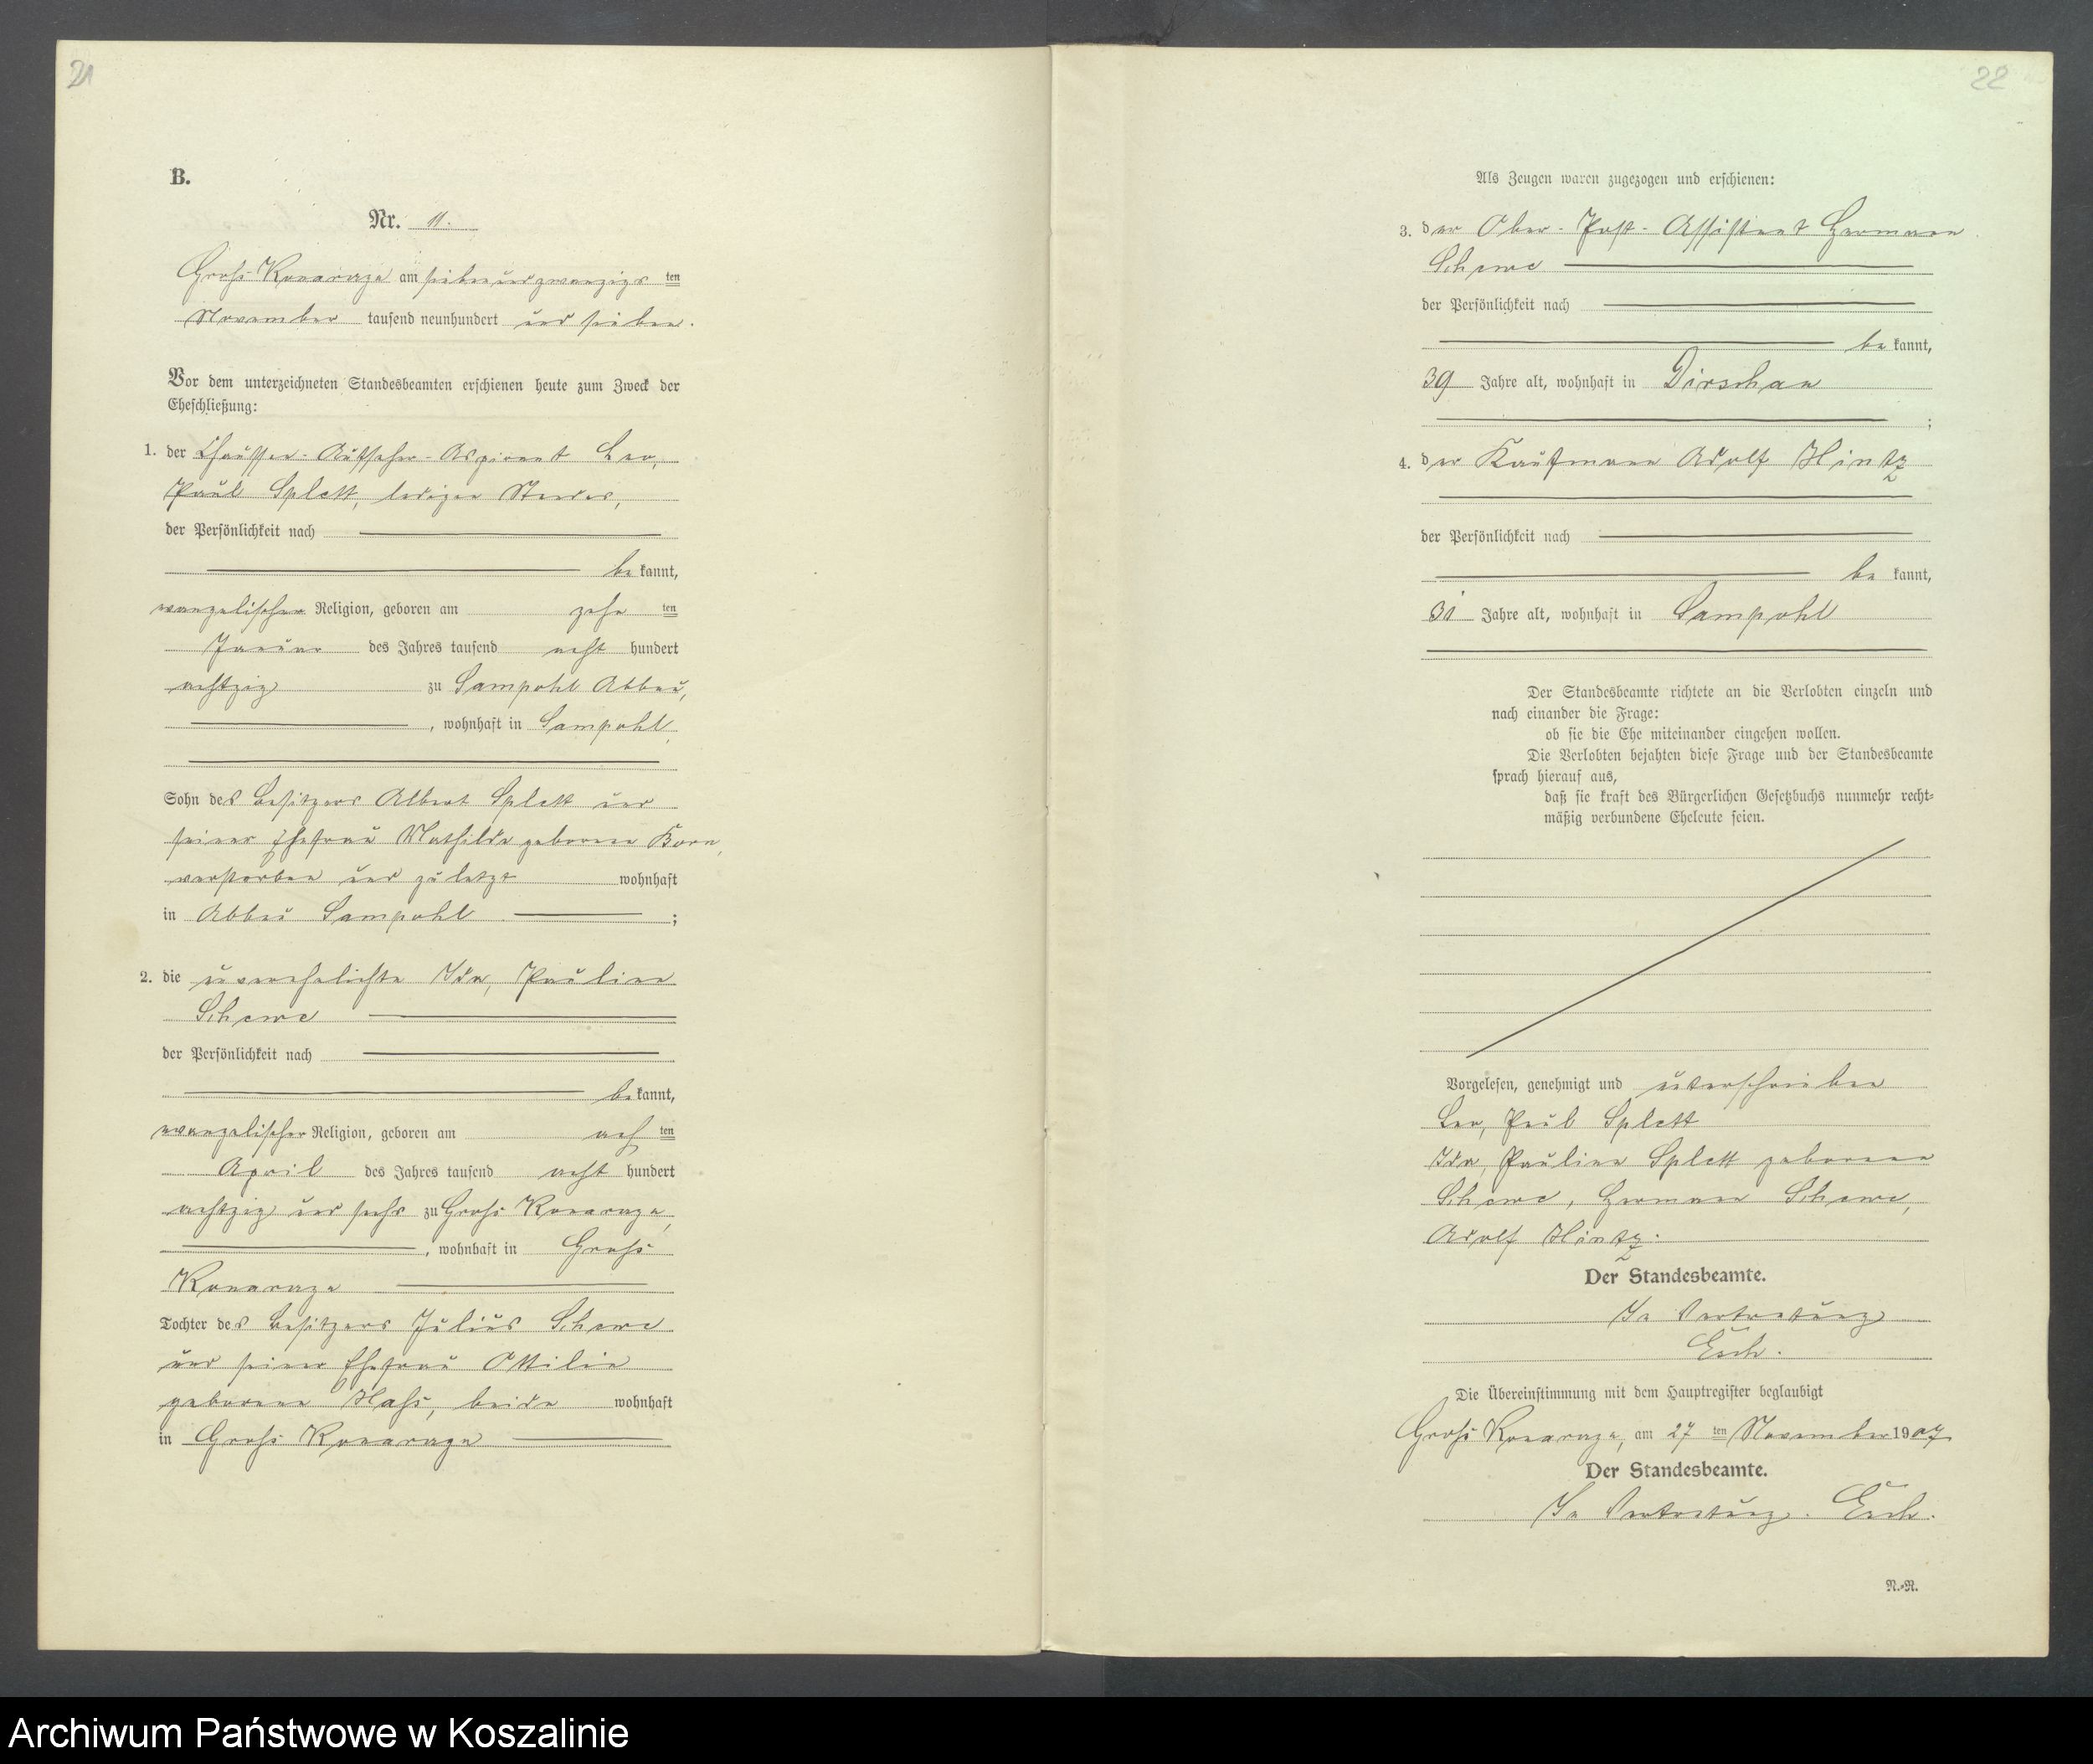 21
B.
Nr. 11.
Groß Konarczyn am siebenundzwanzigsten
November tausend neunhundert und sieben.
Vor dem unterzeichneten Standesbeamten erschienen heute zum Zweck der
Eheschließung:
1. der Chaussee-Aufseher-Aspirant Leo,
Paul Splett, ledigen Standes,
der Persönlichkeit nach
bekannt,
evangelischer Religion, geboren am zehnten
Januar des Jahres tausend acht hundert
achtzig zu Sampohl Abbau,
, wohnhaft in Sampohl,
Sohn des Besitzers Albert Splett und
seiner Ehefrau Mathilde geborene Born,
verstorben und zuletzt wohnhaft
in Abbau Sampohl ;
2. die unverehelichte Ida, Pauline
Schewe
der Persönlichkeit nach
bekannt,
evangelischer Religion, geboren am achten
April des Jahres tausend acht hundert
achtzig und sechs zu Groß Konarczyn,
, wohnhaft in Groß
Konarczyn
Tochter des Besitzers Julius Schewe
und seiner Ehefrau Ottilie
geborene Haß, beide wohnhaft
in Groß Konarczyn
22
Als Zeugen waren zugezogen und erschienen:
3. der Ober-Post-Assistent Hermann
Schewe
der Persönlichkeit nach
bekannt,
39 Jahre alt, wohnhaft in Dirschau
;
4. der Kaufmann Adolf Hintz
der Persönlichkeit nach
bekannt,
31 Jahre alt, wohnhaft in Sampohl
Der Standesbeamte richtete an die Verlobten einzeln und
nach einander die Frage:
ob sie die Ehe miteinander eingehen wollen.
Die Verlobten bejahten diese Frage und der Standesbeamte
sprach hierauf aus,
daß sie kraft des Bürgerlichen Gesetzbuchs nunmehr recht-
mäßig verbundene Eheleute seien.
Vorgelesen, genehmigt und unterschrieben
Leo, Paul Splett
Ida, Pauline Splett geborene
Schewe, Hermann Schewe,
Adolf Hintz.
Der Standesbeamte.
In Vertretung
Esch.
Die Übereinstimmung mit dem Hauptregister beglaubigt
Groß Konarczyn, am 27ten November 1907
Der Standesbeamte.
In Vertretung. Esch.
N.-R.
Archiwum Państwowe w Koszalinie